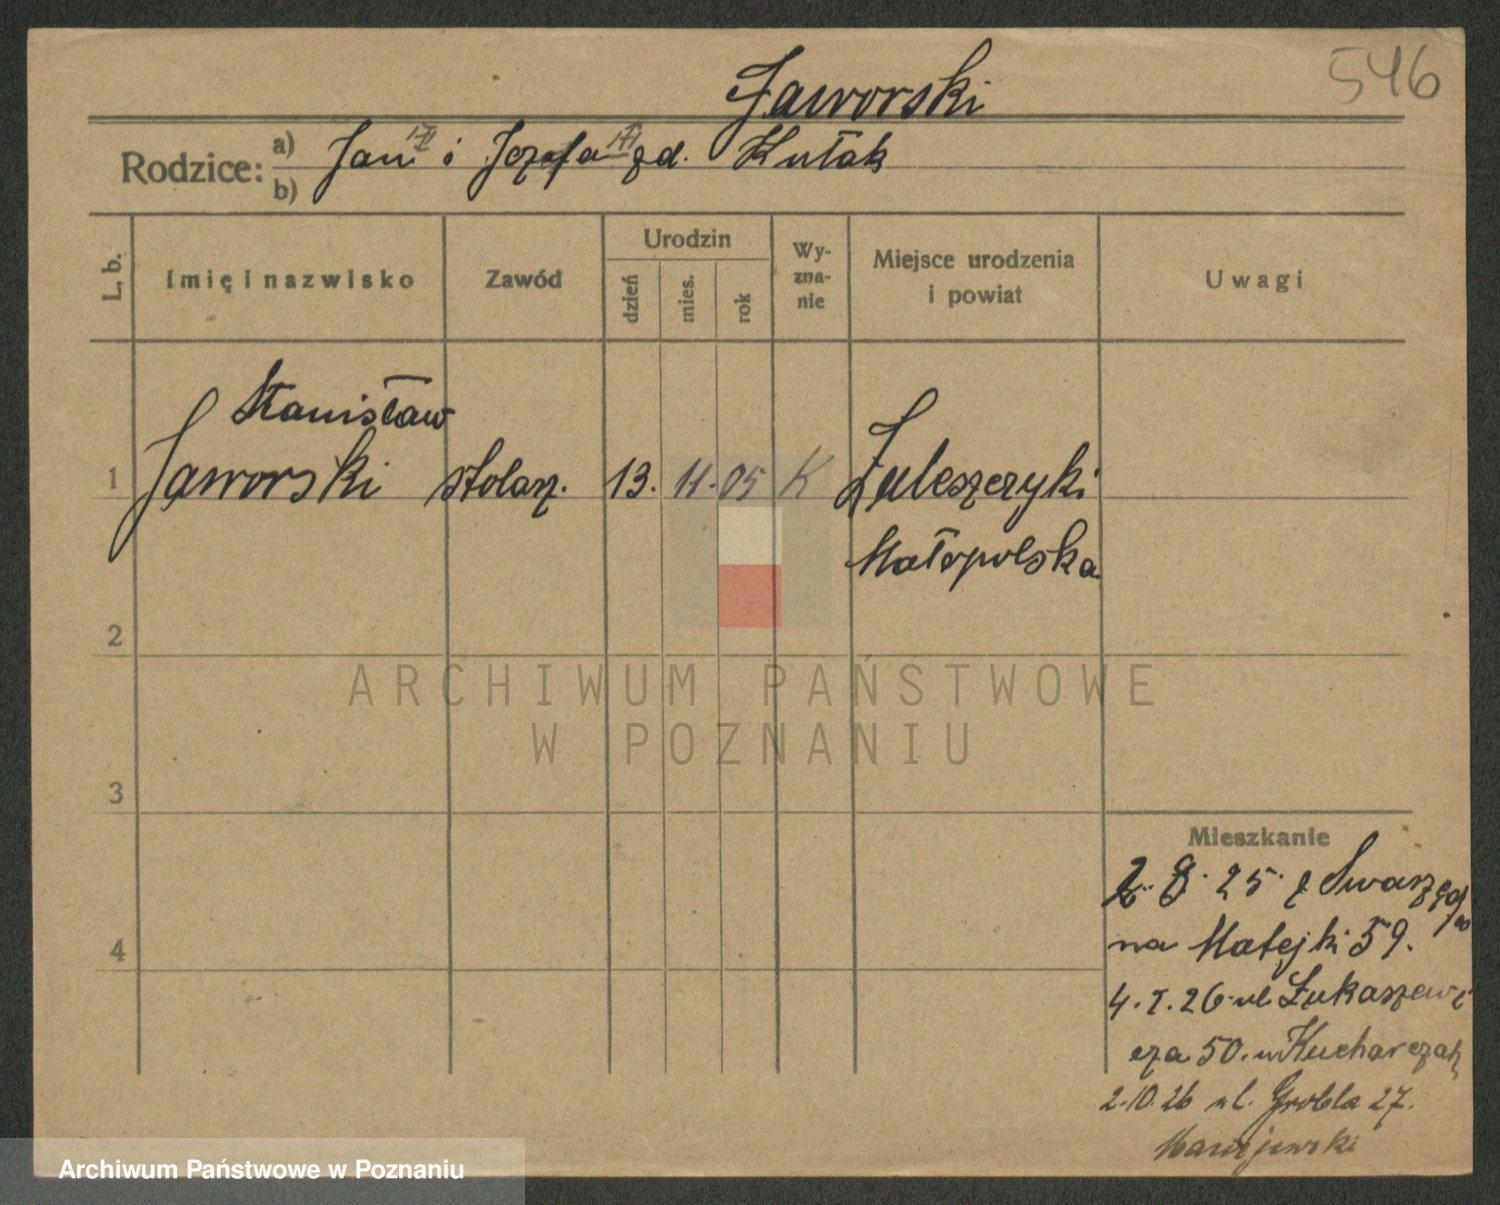 546
Jaworski
Rodzice: a) b) Jan i Józefa zd. Kułak
L. b.
Imię i nazwisko
Zawód
Urodzin
dzień
mies.
rok
Wy-
zna-
nie
Miejsce urodzenia
i powiat
Uwagi
Stanisław
1 Jaworski stolarz. 13. 11. 05 K Zaleszczyki
Małopolska
2
ARCHIWUM PAŃSTWOWE
W POZNANIU
3
Mieszkanie
2. 8. 25. z Swarzędz
na Matejki 59.
4. I. 26 ul. Łukaszewi
cza 50. u Kucharczak
4
2.10.26 ul. Grobla 27.
Maciejewski
Archiwum Państwowe w Poznaniu